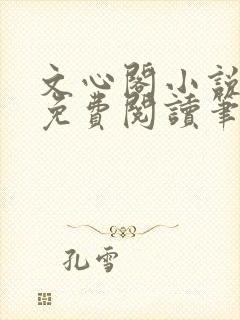 文心閣小說
免費閱讀筆
孔雪